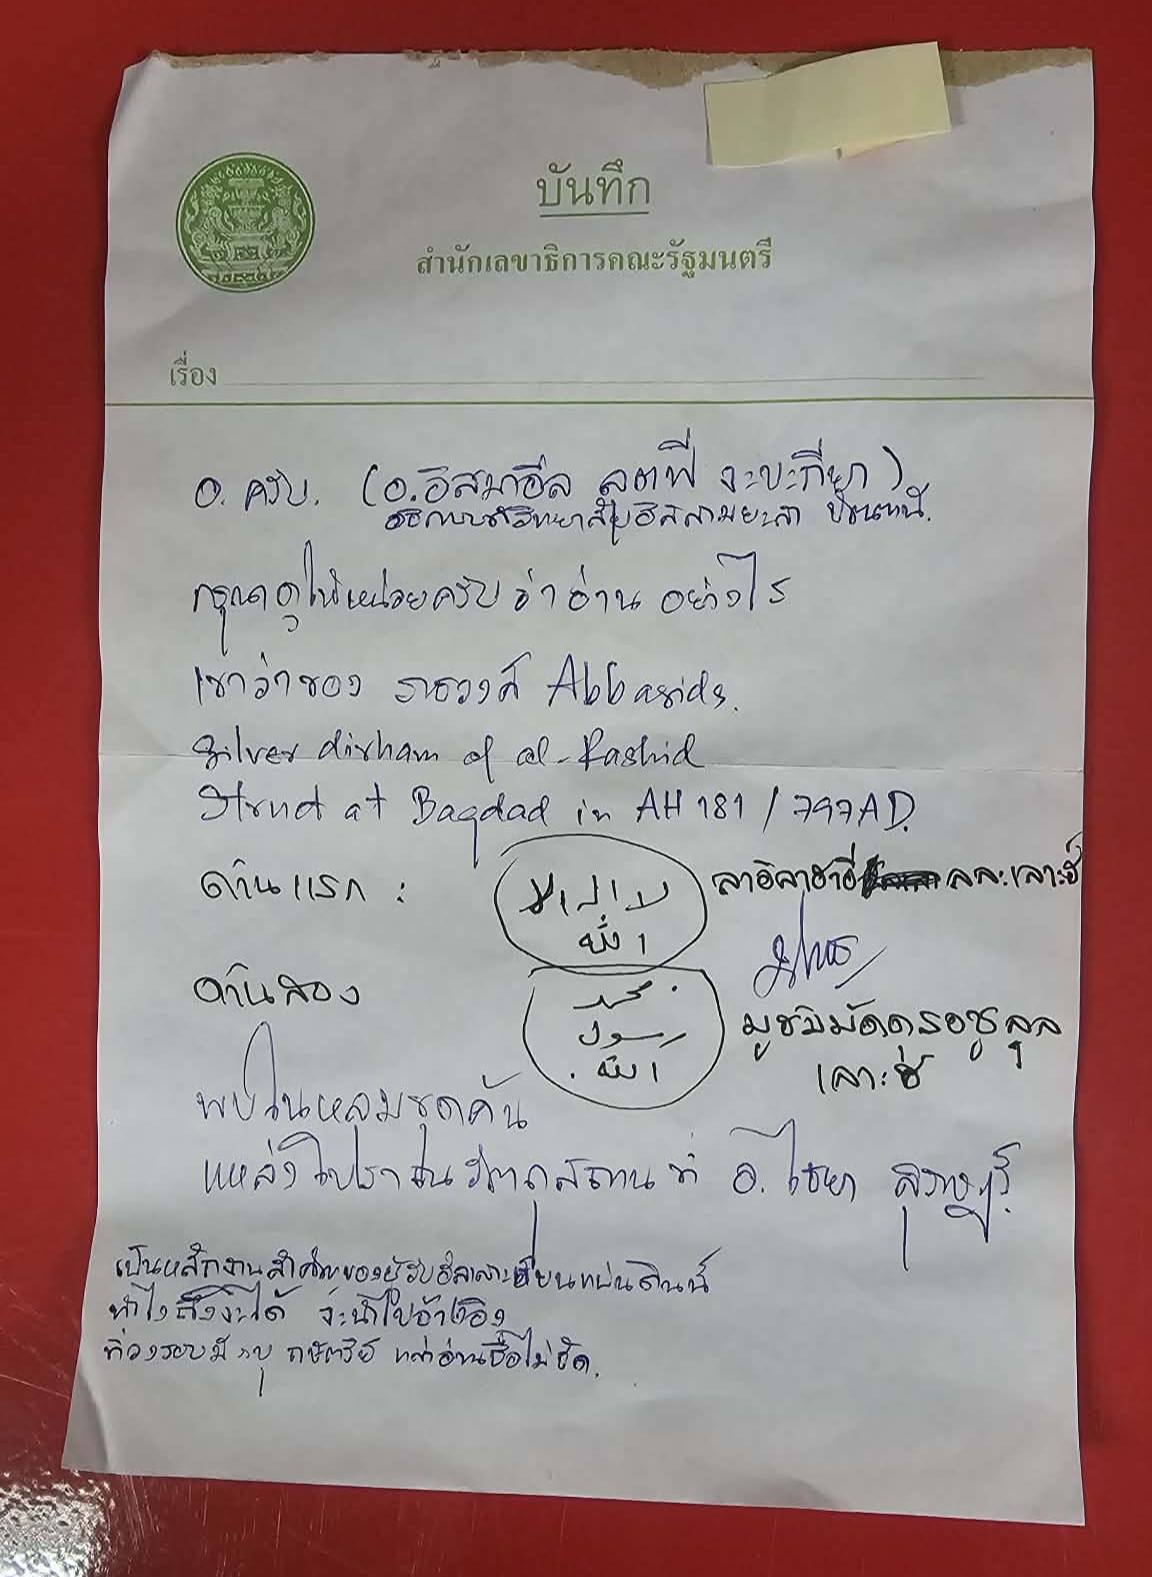 บันทึก
สำนักเลขาธิการคณะรัฐมนตรี
เรื่อง
อ. ครับ. (อ.อิสมาอีล ลุตฟี จะปะกียา)
อธิการบดีวิทยาลัยอิสลามยะลา ปัตตานี.
กรุณาดูให้หน่อยครับ ว่าอ่าน อย่างไร
เขาว่าของ ราชวงศ์ Abbasids.
Silver dirham of al-Rashid
Struct at Bagdad in AH 181 / 797 AD.
ด้านแรก :
ลาอิลาฮาอี ลละเลาะฮ์
ด้านสอง
محمد
رسول
มูฮัมมัดดุรอซูลุล
เลาะฮ์
พบในหลุมขุดค้น
แหล่งโบราณวัตถุสถาน ที่ อ. ไชยา สุราษฎร์.
เป็นหลักงานสำคัญของผู้รับอิสลาม แผ่นดินนี้
ทำไงถึงจะได้ จะนำไปอ้างอิง
ที่วงรอบมี ระบุ กษัตริย์ แต่อ่านชื่อไม่ชัด.